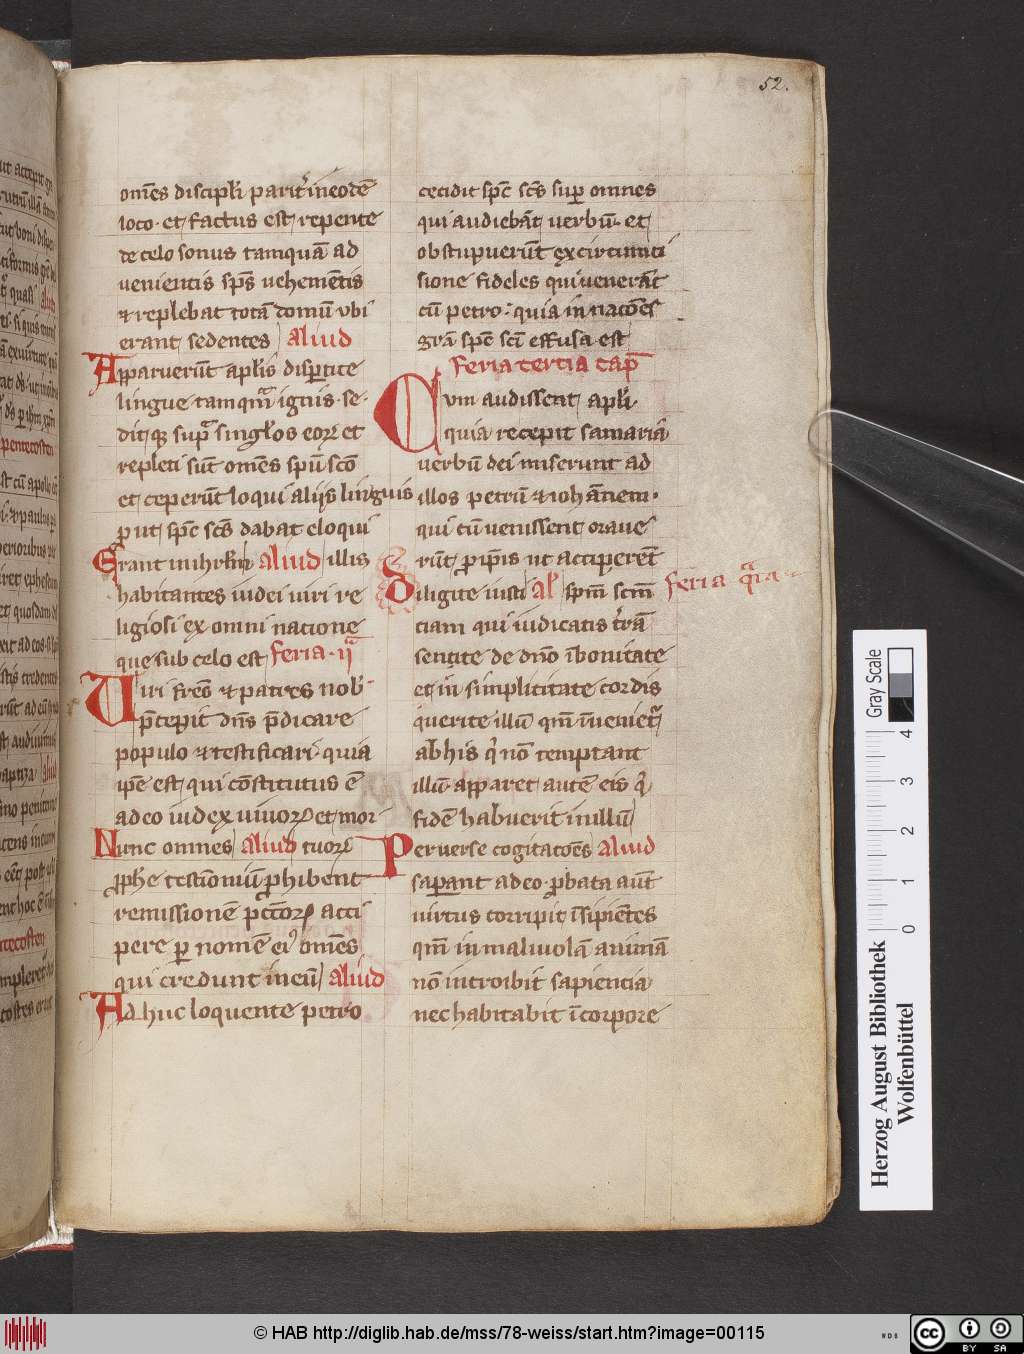 52.
om̄es discipli parit̉ in eodē
loco · et factus est repente
de celo sonus tamquā ad
uenientis sp̄s uehemētis
⁊ replebat totā domū vbi
erant sedentes Aliud
Apparuerūt apl̄is disp̱tite
lingue tamqm̄ ignis · se
ditq; supra singl̓os eoꝝ et
repleti sūt om̄es spū sc̄o
et ceperūt loqui alijs linguis
put sp̄c sc̄s dabat eloqui
Erant in ihrl̄m Aliud illis
habitantes iudei uiri re
ligiosi ex omni natione
que sub celo est feria · ij
Uiri fr̄es ⁊ patres nob̓
p̄cepit dn̄s p̄dicare
populo ⁊ testificari quia
ip̄e est qui cōstitutus ē
a deo iudex uiuoꝝ et mor
Nunc omnes Aliud tuoꝝ
ꝓphe testimoniū ꝓhibent
remissionē pcc̄oꝝ acci
pere ꝑ nomē ei᾿ om̄es
qui credunt in eū Aliud
Ad huc loquente petro
cecidit sp̄c sc̄s suꝑ omnes
qui audiebāt verbū · et
obstupuerūt ex circūnci
sione fideles qui uenerāt
cū petro · quia in nacōes
grā sp̄c sc̄i effusa est
feria tertia cap̄
Cum audissent apl̄i
quia recepit samaria
uerbū dei miserunt ad
illos petrū ⁊ iohānem ·
qui cū uenissent oraue
rūt ꝓ ip̄is ut acciperēt
Diligite iusti Al̓ sp̄m sc̄m feria qr̄ta
ciam qui iudicatis t̓rā
sentite de dn̄o ī bonitate
et in simplicitate cordis
querite illū qm̄ īuenietr̄
ab his q̓ nō temptant
illū · apparet autē eis q̓
fidē habuerit in illū
Peruerse cogitacōes Aliud
saparant a deo · ꝓbata aūt
uirtus corripit īsipiētes
qm̄ in maliuolā animā
nō introibit sapiencia
nec habitabit ī corpore
Gray Scale
0 1 2 3 4
Herzog August Bibliothek
Wolfenbüttel
© HAB http://diglib.hab.de/mss/78-weiss/start.htm?image=00115
cc BY SA